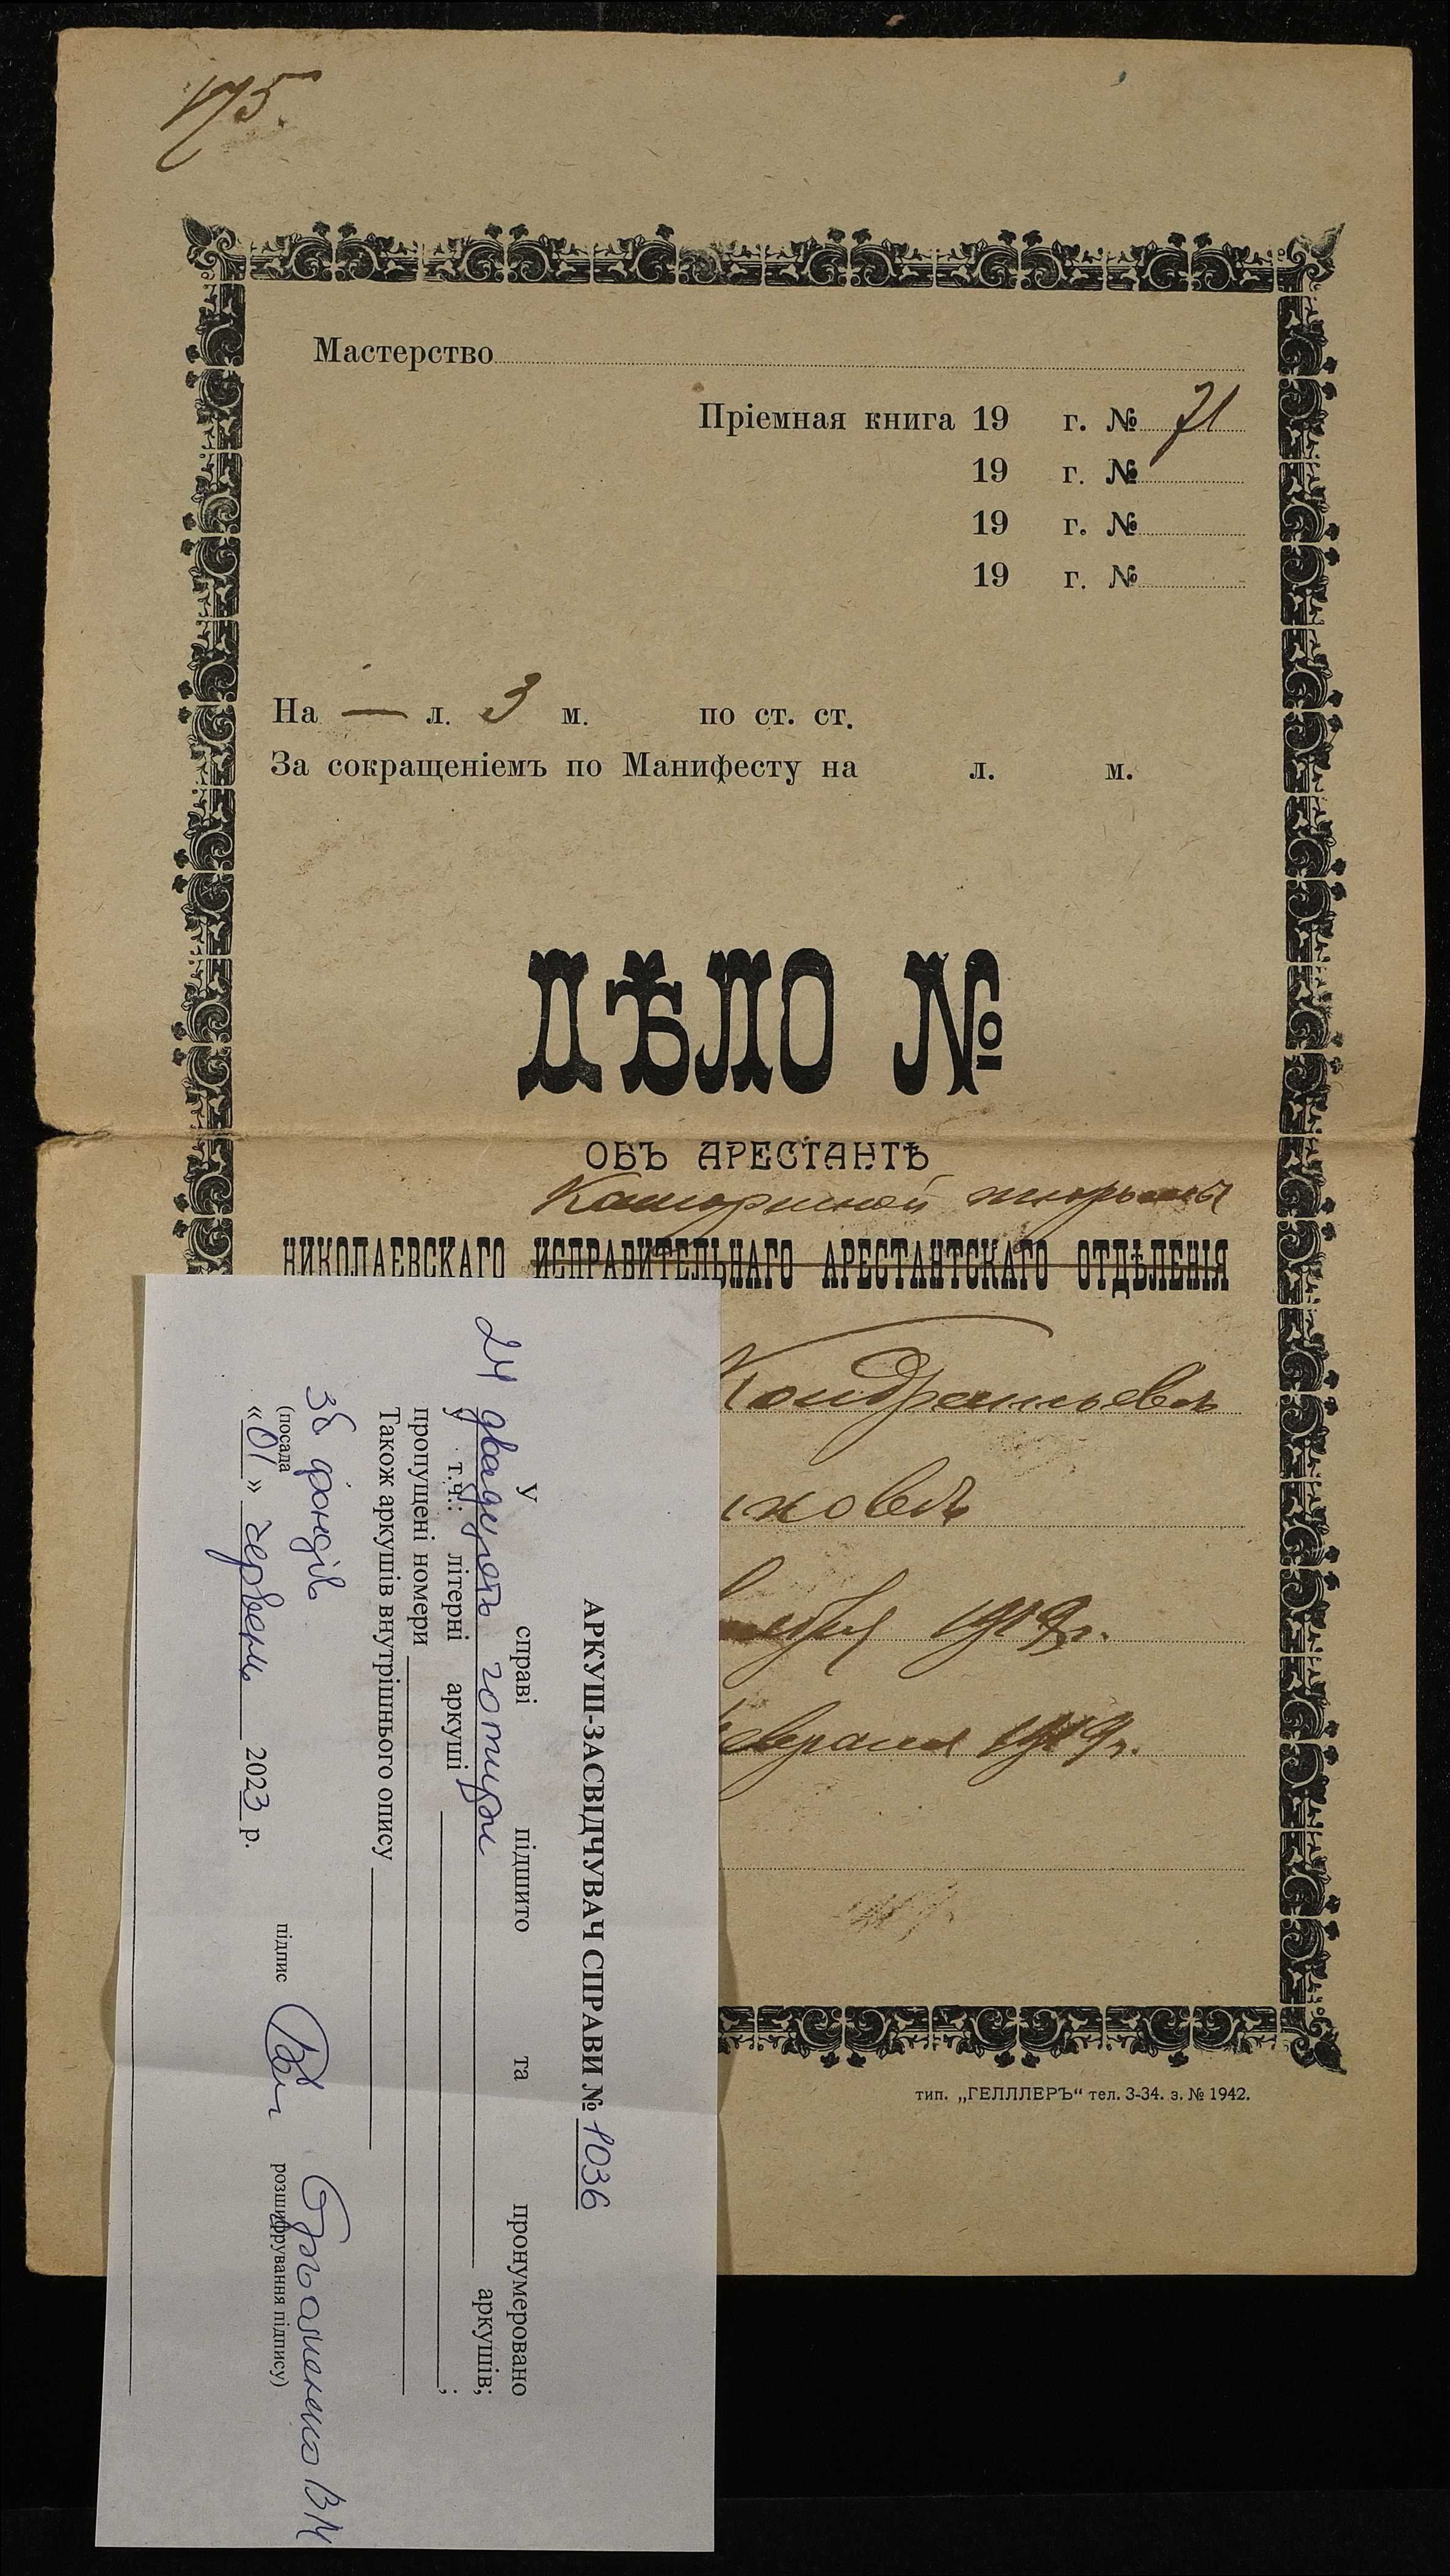 175.
Мастерство
Пріемная книга 19 г. № 71
19 г. №
19 г. №
19 г. №
На — л. 3 м. по ст. ст.
За сокращеніемъ по Манифесту на л. м.
ДѢЛО №
ОБЪ АРЕСТАНТѢ
Каторжной тюрьмы
НИКОЛАЕВСКАГО ИСПРАВИТЕЛЬНАГО АРЕСТАНТСКАГО ОТДѢЛЕНІЯ
Кондратьевъ
1919г.
евраля 1919г.
тип. „ГЕЛЛЛЕРЪ“ тел. 3-34. з. № 1942.
АРКУШ-ЗАСВІДЧУВАЧ СПРАВИ № 1036
У справі підшито та пронумеровано
24 двадцять чотири аркушів;
у т.ч.: літерні аркуші ;
пропущені номери
Також аркушів внутрішнього опису
Зб фондів
(посада підпис розшифрування підпису)
«01» червень 2023 р.